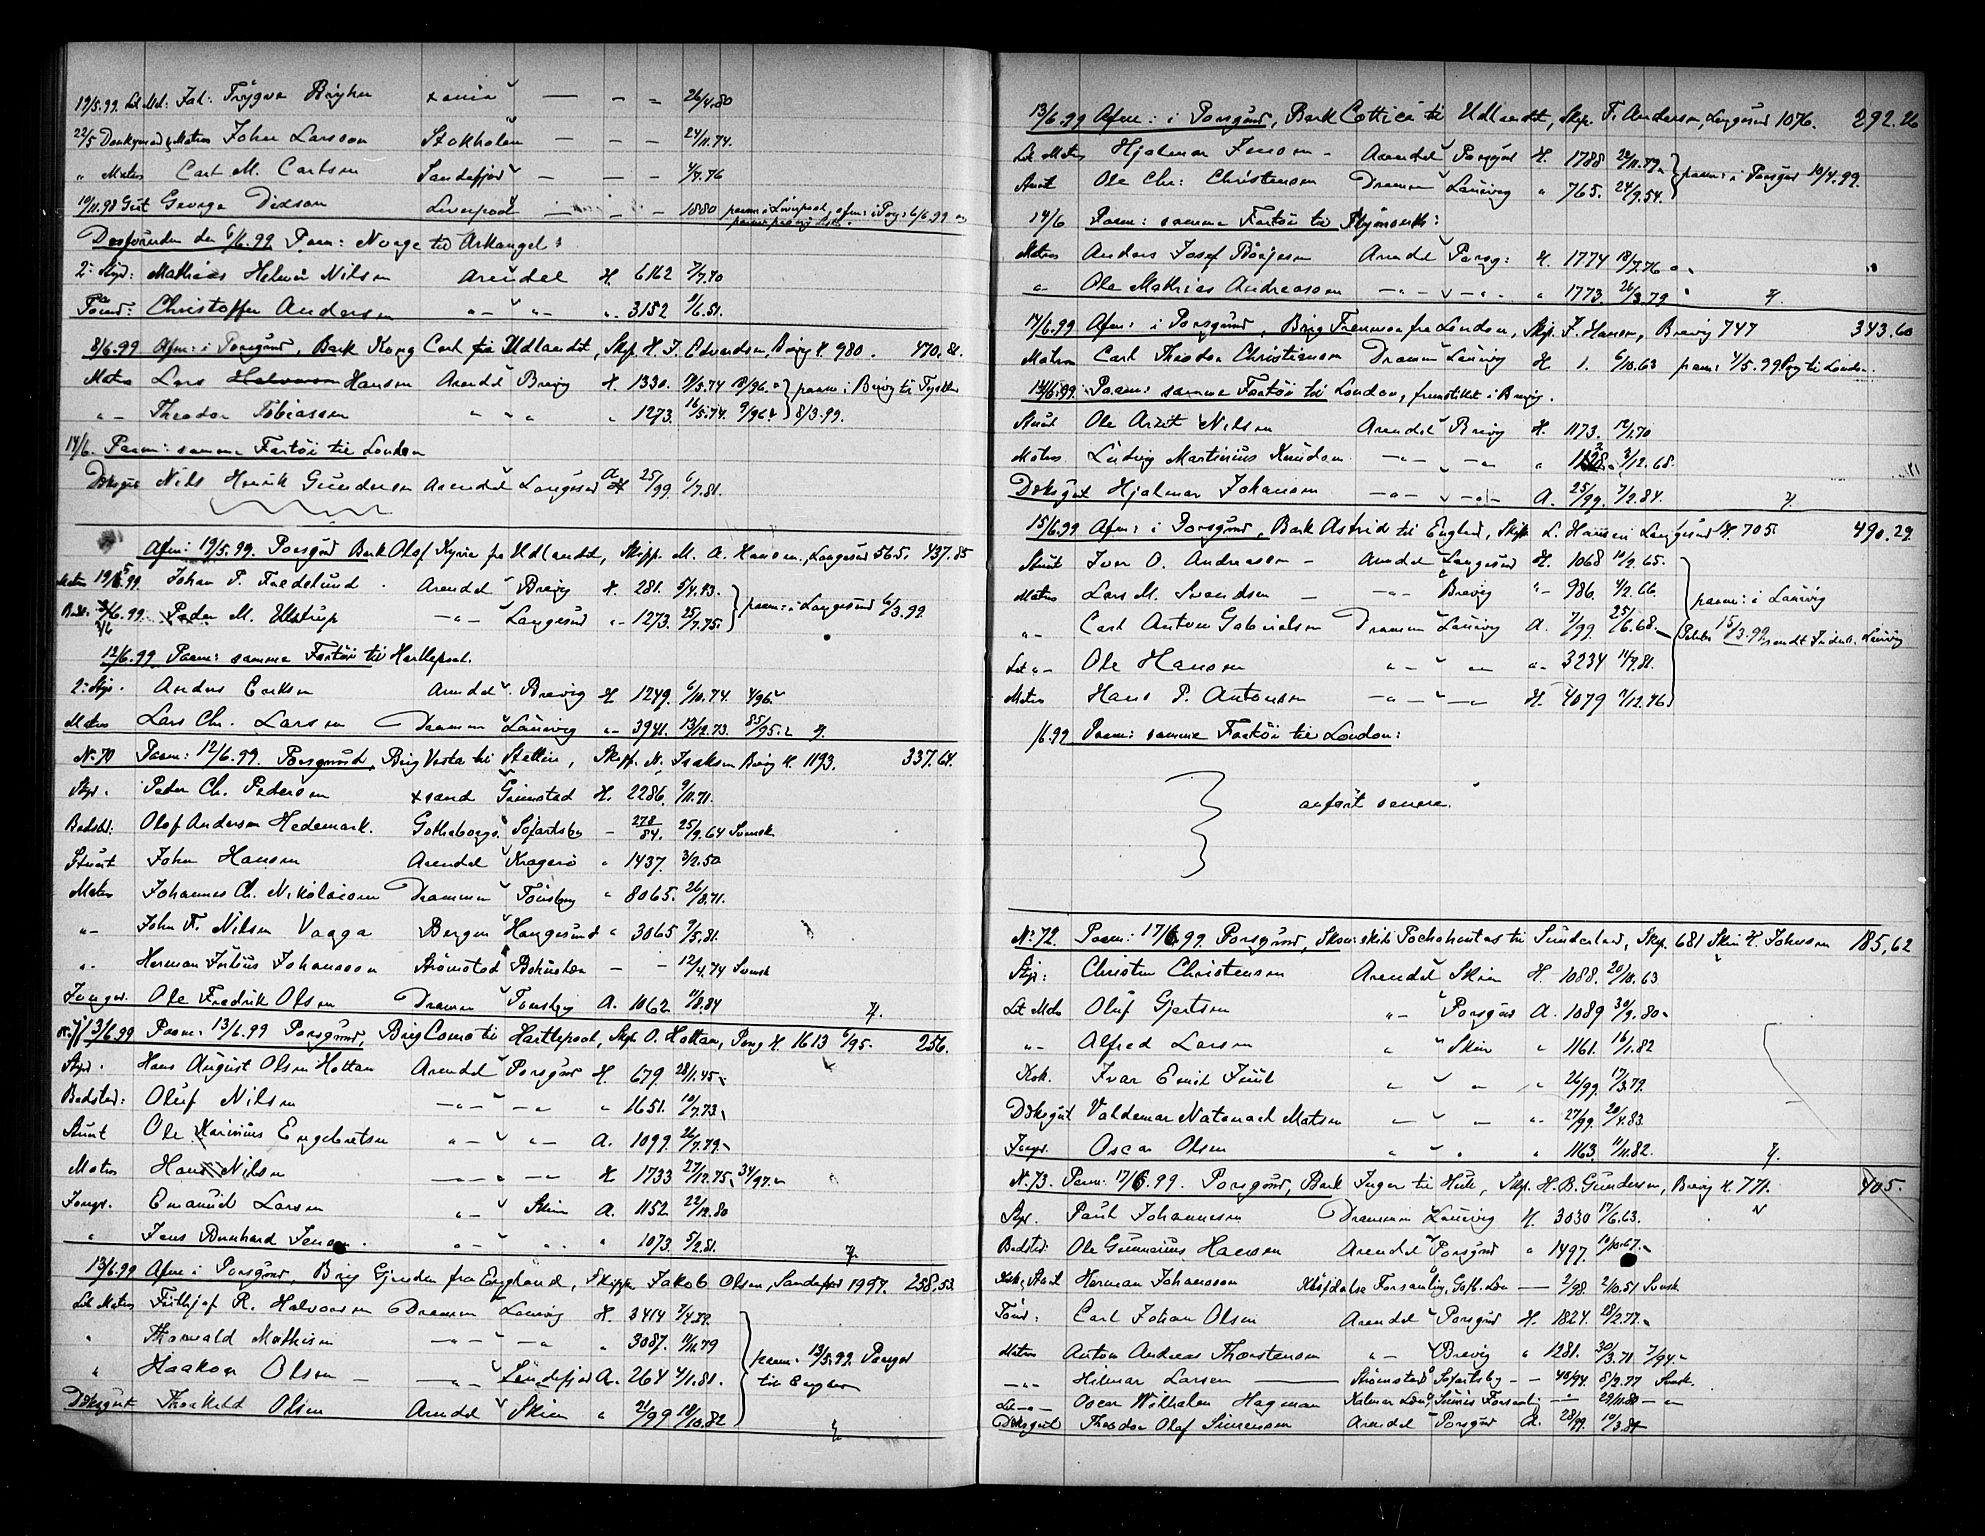 19/5.99. Let Mat: Joh: Trygve  26/4.80
22/5 Matros John Larsson Stokholm — — — 24/11.74.
" Matros Carl M. Carlson Sandefjord — — — 4/4.76
19/11.98 George Didson Liverpool — — 1880 paam: i Liverpool, afm: i Pors: 6/6.99
Desforuden den 6/6.99 Paam: Norge til Arkangel:
2: Styr: Mathias Helmer Nilsen Arendal H. 6162 7/7.70
Tømd: Christoffer Andersen " — " — " 3152 9/6.51.
8/6.99 Afm: i Porsgrund, Bark Kong Carl fra Udlandet, Skp. H. J. Edvardsen, Brevig H. 980. 470.81.
Matros Lars Hansen Arendal Brevig H. 1330. 9/5.74 paam: i Brevig til
" — Theodor Tobiassen " " " " 1273. 16/5.74. 9/96 8/3.99.
14/6. Paam: samme Fartøi til London
Dæksgut Nils Henrik Gundersen Arendal Langesund A 25/99. 6/7.81.
Afm: 19/5.99. Porsgrund Bark Olaf Kyrre fra Udlandet, Skipp. M. A. Hansen, Langesund 565. 437.85
Matros 19/5.99. Johan P. Fredelund Arendal Brevig H. 281. 5/4.43. paam: i Langesund 6/3.99.
Peder M. Ulstrup — " — Langesund " 1273. 25/7.75.
12/6.99 Paam: samme Fartøi til Hartlepool.
2: Styr. Anders Eriksen Arendal Brevig H 1249. 6/10.74. 4/96.
Matros Lars Chr. Larsen Drammen Laurvig " — 3941. 13/12.73. 85/95.
No. 70 Paam: 12/6.99. Porsgrund, Brig Vesta til Stettin, Skipp. N. Isaksen Brevig H. 1193. 337.64.
Styr. Peder Ch. Pedersen xsand Grimstad H. 2286. 9/11.71.
Bedstd. Olof Anderson Hedemark. Gotheborgs Sjøfartsby — 278/84. 25/9.64 Svensk
Stuert John Hansen Arendal Kragerø " 1437. 3/2.50
Matros Johannes Ch. Nikolaisen Drammen Tønsberg " 8065. 26/8.71.
" — John T. Nilsen Vaaga Bergen Haugesund " 3065 9/5.81.
" Herman Julius Johansson Strömstad Bohuslän — — 12/4.74 Svensk
Jungm. Ole Fredrik Olsen Drammen Tønsberg A. 1062. 11/8.84
No. 71 13/6.99 Paam: 13/6.99 Porsgrund, Brig Como til Hartlepool, Skp. O. Hottan, Pors H. 1613 6/95. 256.
Styr. Hans August Olsen Hottan Arendal Porsgrund H. 679. 28/1.45
Bedstd: Oluf Nilsen — " — — " " 1651. 10/7.73
Stuert Ole Marinius Engebretsen " — " — A. 1099. 26/7.79
Matros Hans Nilsen — " — " H 1733 27/12.75. 34/97.
Jungm. Emanuel Larsen " — Skien A. 1152. 22/12.80
" Jens Bernhard Jensen. " — " " 1073. 5/2.81.
13/6.99 Afm i Porsgrund, Brig Gjenden fra England, Skipp Jakob Olsen, Sandefjord 1997. 258.53
Let Matros Frithjof R. Halvorsen Drammen Laurvig H. 3414
" Thorvald Mathisen — " — — " " 3087. 11/11.79 paam: 13/5.99. Porsgr
" Haakon Olsen — — " — Sandefjord A. 264 4/1.81. til England
Dæksgut Thorkild Olsen Arendal Skien " 21/99 19/10.82
13/6.99 Afm: i Porsgrund, Bark Cottica til Udlandet, Skp. T. Andersen, Langesund 1076. 292.26
Let Matros Hjalmar Jensen — Arendal Porsgrund H. 1788 paam: i Porsgrund 10/4.99.
Stuert Ole Chr: Christensen Drammen Laurvig " 765. 24/9.54.
14/6 Paam: samme Fartøi til Plymouth:
Matros Anders Josef Børjesen Arendal Porsg: H. 1774 18/7.76
" Ole Mathias Andreassen — " — — " " 1773. 26/3.79
14/6.99 Afm: i Porsgrund, Brig Fremmon fra London, Skp. J. Hansen, Brevig 747 343.60
Matros Carl Theodor Christiansen Drammen Laurvig H 1. 6/10.63 paam: 4/5.99 Brvg til London.
14/6.99. Paam: samme Fartøi til London, fremstillet i Brevig.
Stuert Ole Arnt Nilsen Arendal Brevig H. 1173. 12/1.70
Matros Ludvig Martinius Knudsen — " — — " " 3/12.68.
Dæksgut Hjalmar Johansen — " — — " A. 25/99. 7/2.84.
15/6.99 Afm: i Porsgrund, Bark Astrid til England, Skip L. Hansen, Langesund H. 705. 490.29.
Stuert Iver O. Andreassen — Arendal Langesund H. 1068 10/2.65.
Matros Lars M. Svendsen — — " — Brevig " 986. 4/2.66 paam: i Laurvig
" — Carl Anton Gabrielsen Drammen Laurvig A. 7/99. 25/6.68. 15/3.99, sendt Indr. Laurvig
Let " — Ole Hansen " — " " — 3234 11/9.81.
Matros Hans P. Antonsen — " — " — H. 4079 7/12.76
/6.99 Paam: samme Fartøi til London:
anført senere.
No. 72. Paam: 17/6.99 Porsgrund, Skonskib Pochohontas til Sunderland, Skp. 681 Skien H. Johnsen 185,62
Styr: Christen Christensen Arendal Skien H. 1088. 20/10.63
Let Mats Oluf Gjertsen " — Porsgrund A. 1089 30/9.80
" — Alfred Larsen " " Skien " 1161. 16/1.82
Kok. Ivar Emil Juul " " " 26/99. 17/3.79.
Dæksgut Valdemar Natanael Matsen " — " " — 27/99. 20/4.83.
Jungm. Oscar Olsen " " " " 1163. 11/11.82.
No. 73. Paam: 17/6.99. Porsgrund, Bark Inger til Hull, Skp. H. B. Gundersen, Brevig H. 771. 405.
Styr. Paul Johannesen Drammen Laurvig H. 3030 17/6.63.
Bedstd: Ole Gunnarius Hansen Arendal Porsgrund " 1497. 10/10.67.
Kok, Stuert Herman Johansson Forsamling, Gotb. Län — 2/98. 2/10.51 Svensk.
Tømd: Carl Johan Olsen Arendal Porsgrund H. 1824. 28/2.77.
Matros Anton Andreas Thorstensen " — Brevig " 1281. 30/3.71 7/94.
" — Hilmar Larsen — Strömstad Sjøfartsby — 45/94. 8/2.77 Svensk.
Let — " — Oscar Wilhelm Hagman Kalmar Län, Forsamling — 29/11.80
Dæksgut Theodor Olaf Simensen Arendal Porsgrund A. 28/99. 10/3.84